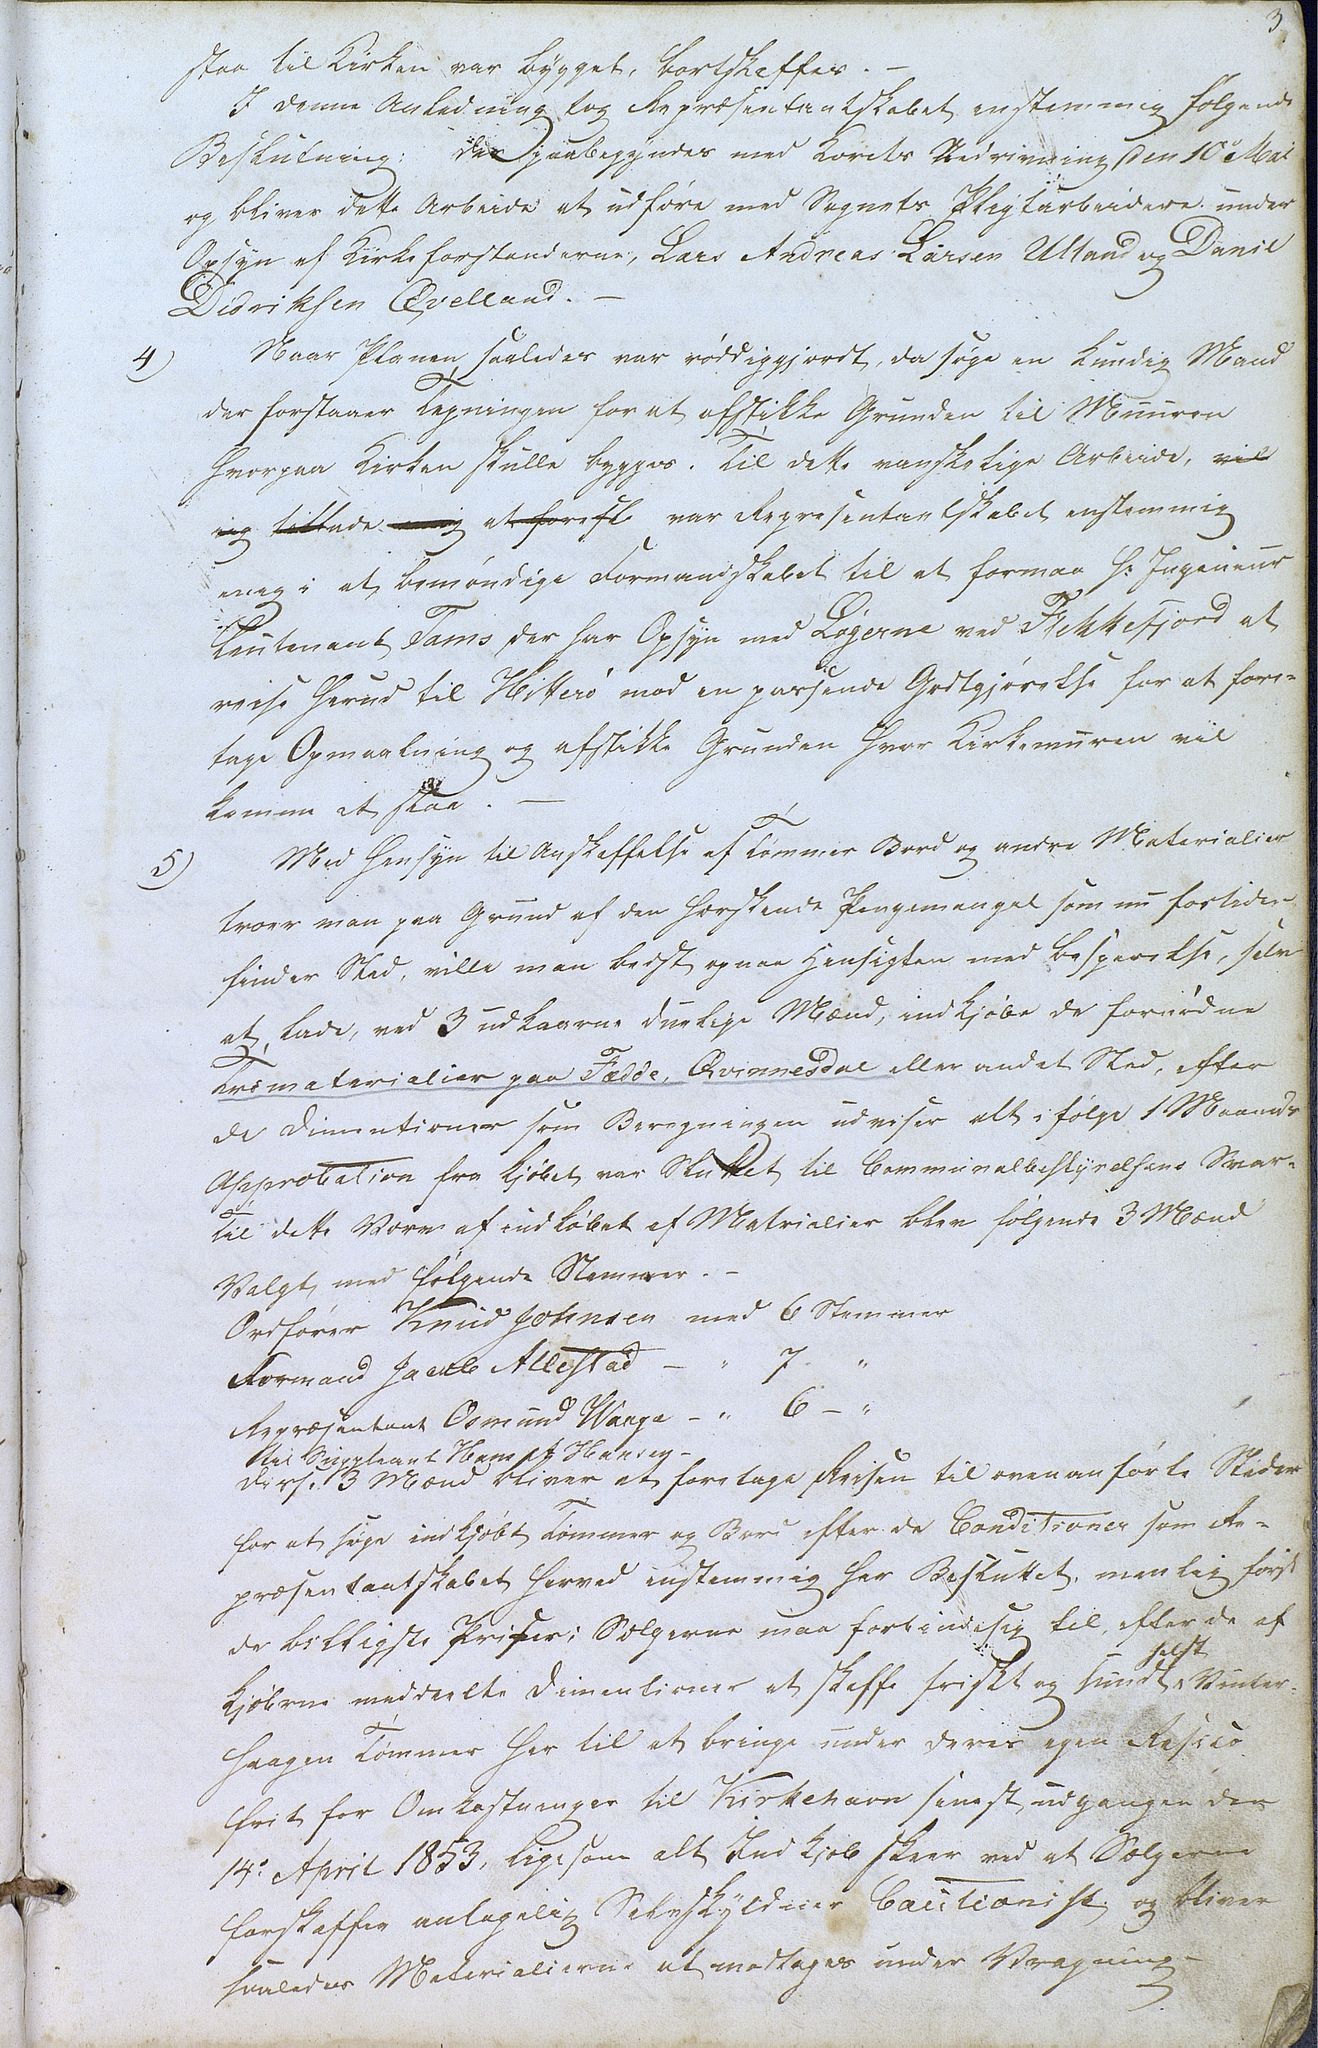 3
staa til Kirken var bygget, bortskaffes. —
I denne Anledning tog Repræsentantskabet enstemmig følgende
Beslutning: der paabegyndes med Korets Nedrivning den 10de Mai
og bliver dette Arbeide at udføre med Sognets Pligtarbeidere under
Opsyn af Kirkeforstanderne, Lars Andreas Larsen Ulland og Daniel
Didriksen Qvelland. —
4) Naar Planen saaledes var røddiggjordt, da søge en kundig Mand
der forstaaer Tegningen for at afstikke Grunden til Muuren
hvorpaa Kirken skulle bygges. Til dette vanskelige Arbeide, vil
jeg tillade mig at foresl var Repræsentantskabet enstemmig
enig i at bemøndige Formandskabet til at formaa Hr Ingenieur
Leutenant Tams der har Opsyn med Løgerne ved Flekkefjord at
reise herud til Hitterø mod en passende Godtgjørelse for at fore-
tage Opmaalning og afstikke Grunden hvor Kirkemuren vil
komme at staa. —
5) Med Hensyn til Anskaffelse af Tømmer Bord og andre Materialier
troer man paa Grund af den herskende Pengemangel som nu fortiden
finder Sted, ville man bedst opnaa Hensigten med besparelse, selv
at, lade, ved 3 udkaarne duelige Mænd, indkjøbe de forødne
Træmaterialier paa Fædde, Qvinnesdal eller andet Sted, efter
de Dimentioner som Beregningen udviser alt ifølge 1 Maaneds
Approbation fra Kjøbet var Sluttet til Communalbestyrelsens Svar.
Til dette Værv af indkøbet af Matrialier blev følgende 3 Mænd
Valgt, med følgende Stemmer. —
Ordfører Knud Johnsen med 6 Stemmer
Formand Jacob Allestad — " 7 "
Repræsentant Osmund Wange — " 6 — "
Til Suppleant Hans Hansen —
Disse 3 Mænd bliver at foretage Reisen til ovenanførte Steder
for at søge indkjøbt Tømmer og Bord efter de Conditioner som Re-
præsentantskabet herved enstemmig har Besluttet, menlig først
de billigste Priser; Sælgerne maa forbinde sig til, efter de af
Kjøberne meddeelte Dimentioner at skaffe friskt og sundt helst Vinter-
haagen Tømmer her til at bringe under deres egen Resico
frit for Omkostninger til Kirkehavn senest udgangen den
14de April 1853, ligesom alt Indkjøb skeer ved at Sælgerne
forskaffer antagelig Selvskyldner Cautionist, og bliver
saaledes Materialierne at modtages under Vragning —